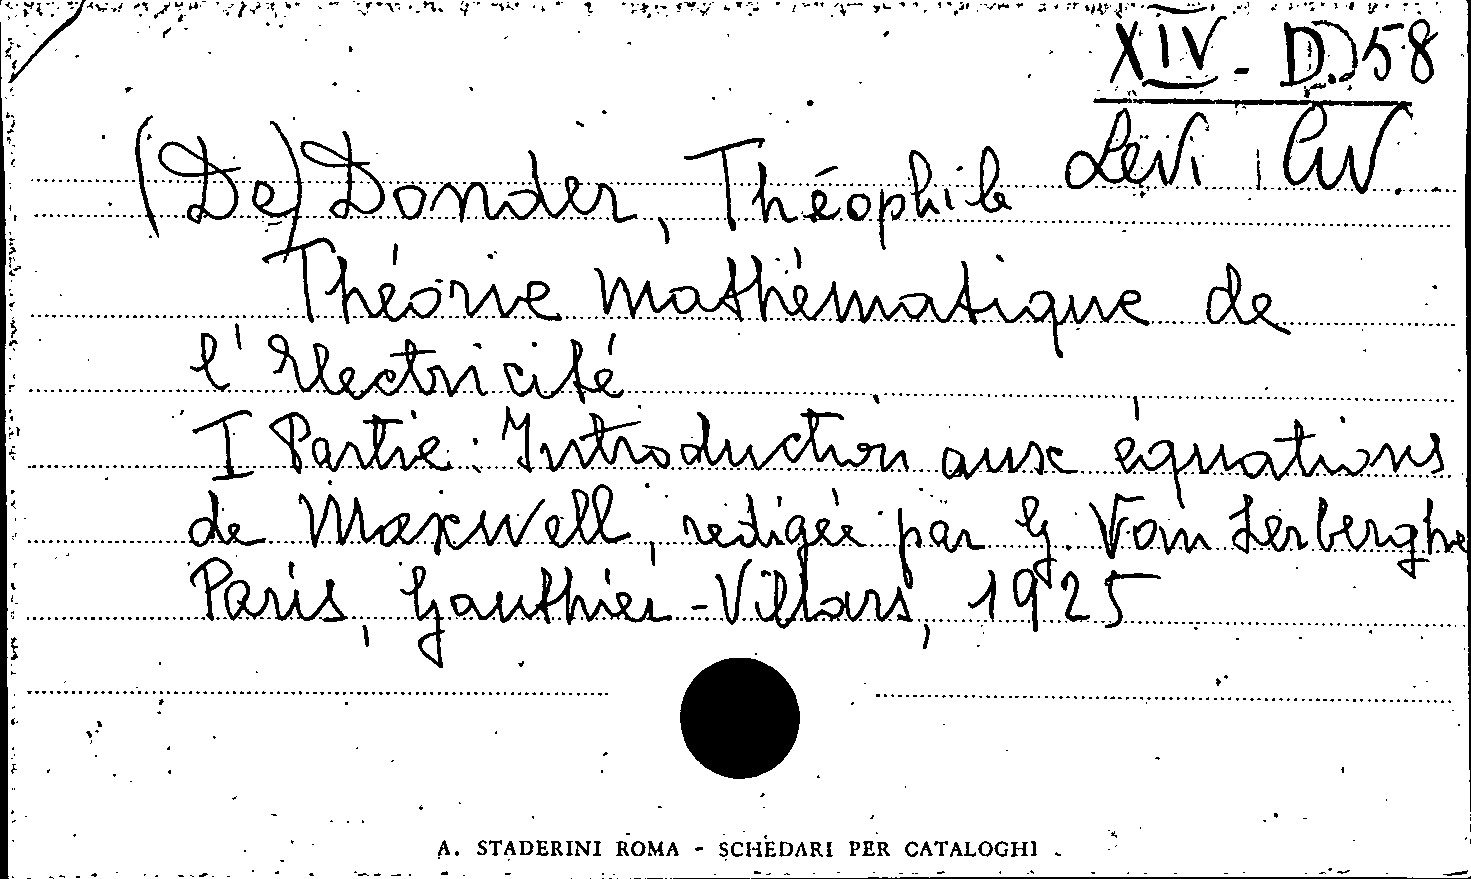 XIV - D. 58
(De) Donder, Théophile Levi Civ.
Théorie mathématique de
l'Electricité
I Partie: Introduction aux équations
de Maxwell, redigée par G. Van Lerberghe
Paris, Gauthier-Villars, 1925
A. STADERINI ROMA - SCHEDARI PER CATALOGHI